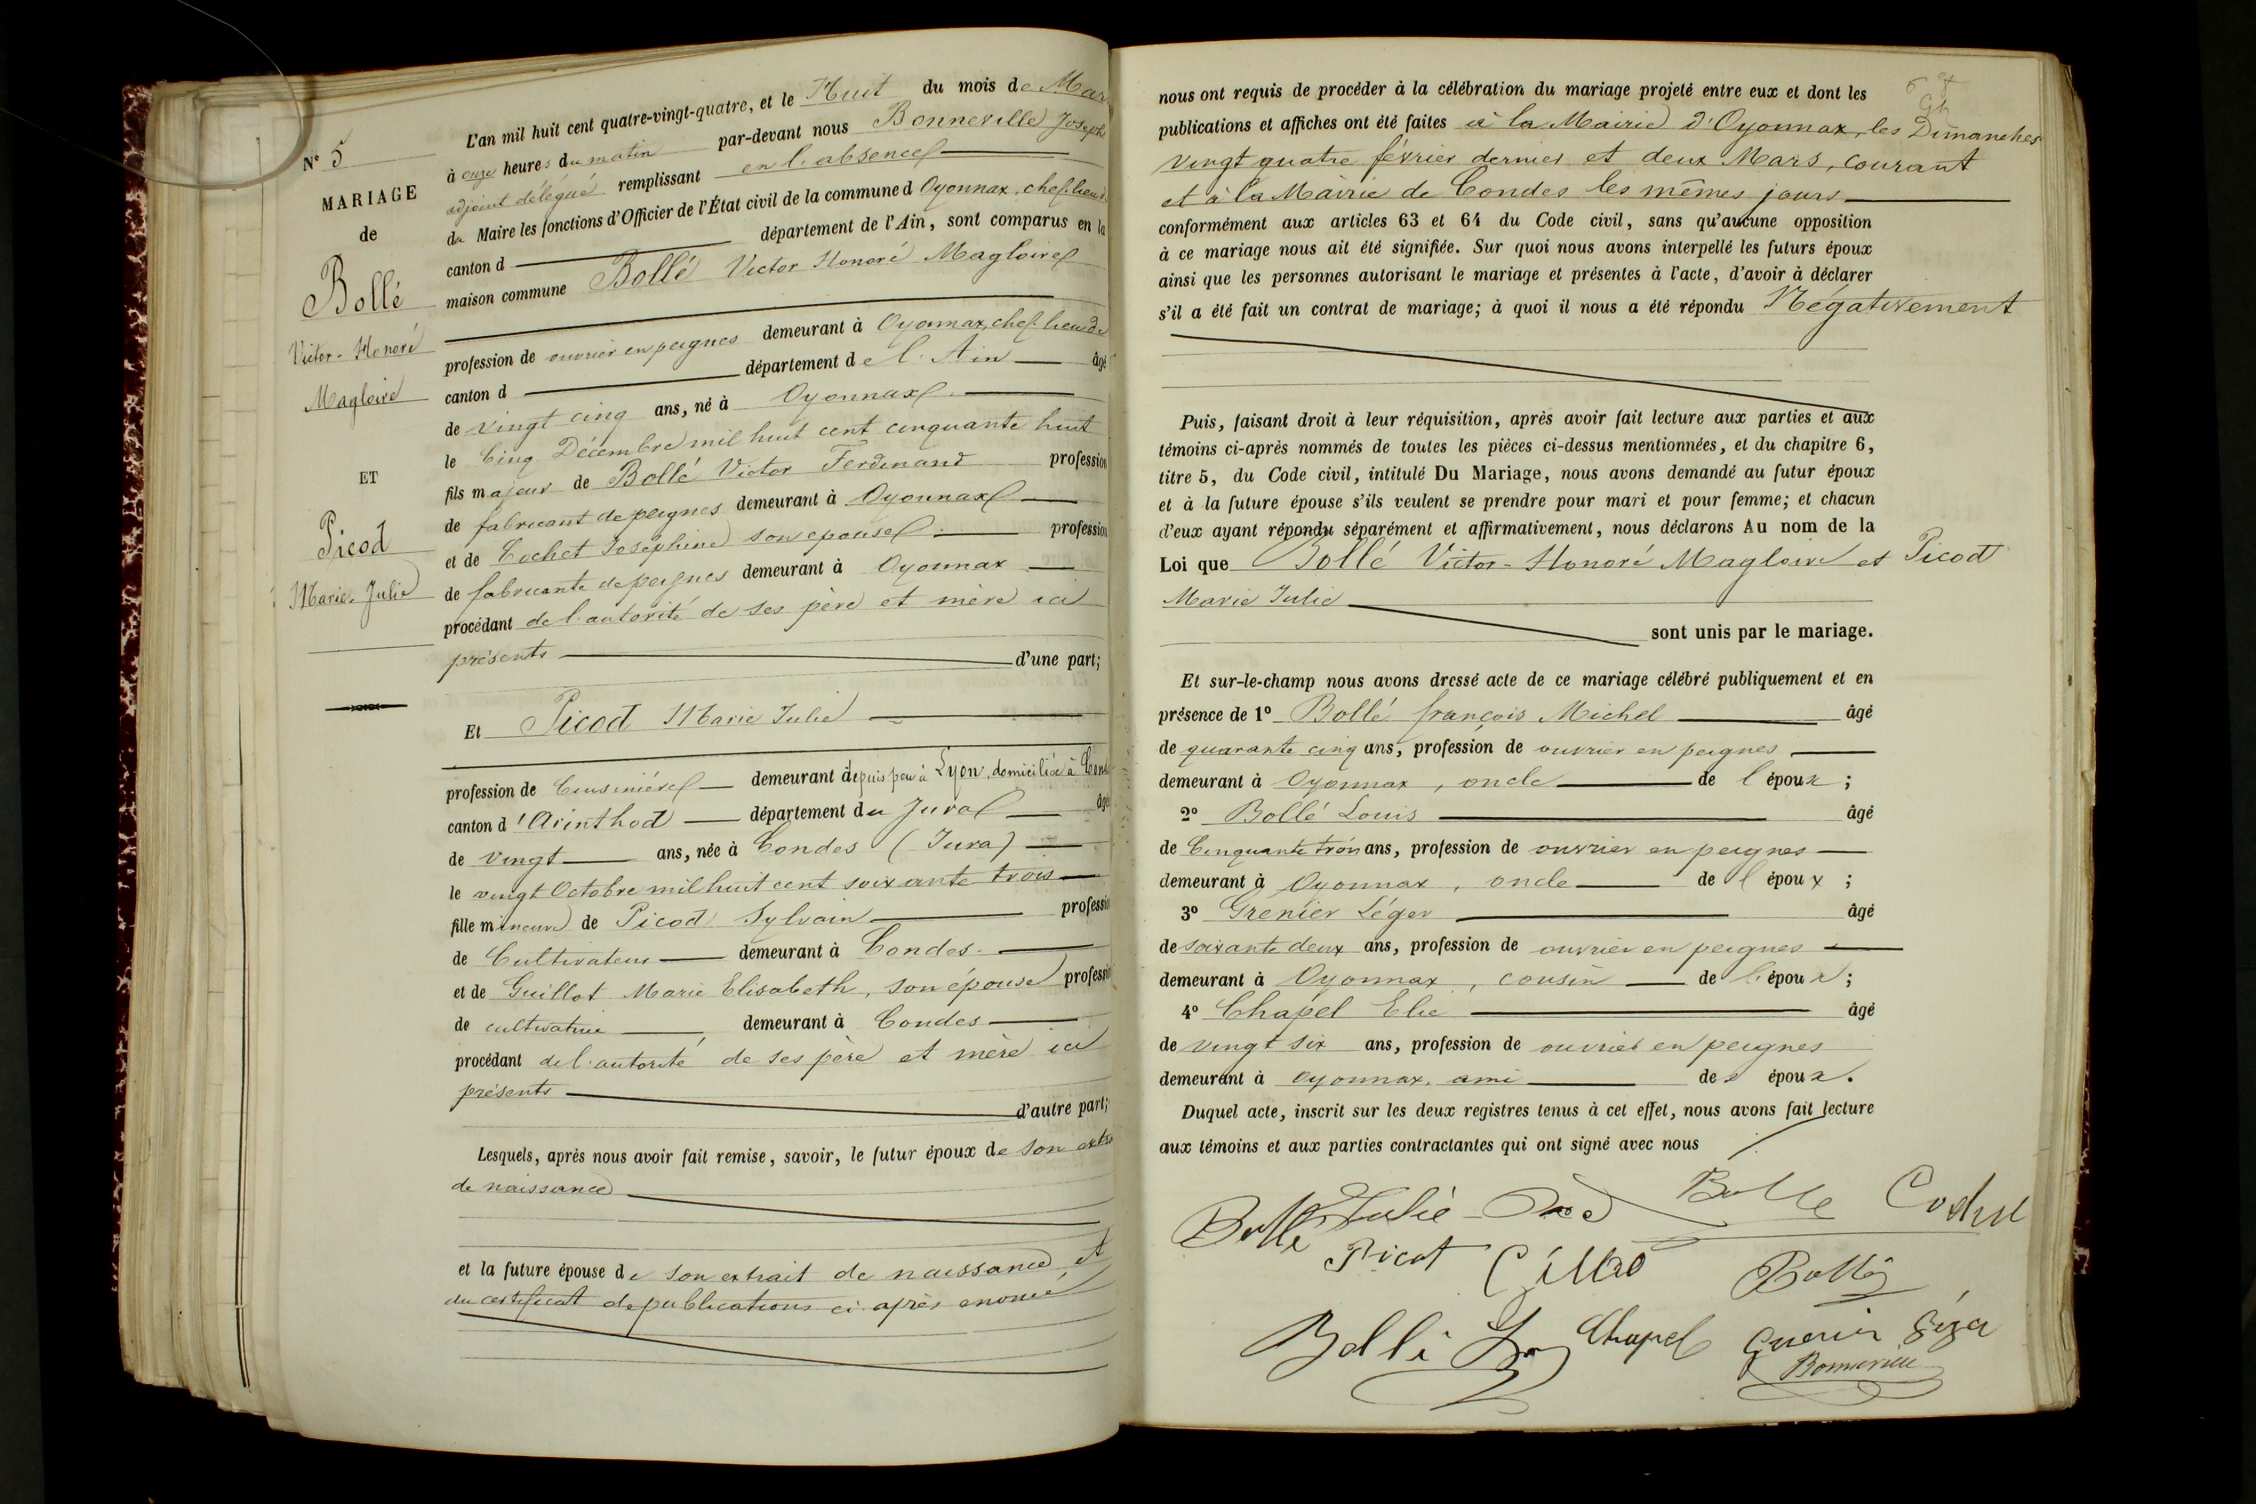 N° 5
MARIAGE
de
Bollé
Victor-Honoré
Magloire
ET
Picod
Marie-Julie
L'an mil huit cent quatre-vingt-quatre, et le Huit du mois de Mars
à onze heures du matin par-devant nous Bonneville Joseph
adjoint délégué remplissant en l'absence
du Maire les fonctions d'Officier de l'État civil de la commune d Oyonnax, chef-lieu de
canton d département de l'Ain, sont comparus en la
maison commune Bollé Victor Honoré Magloire
profession de ouvrier en peignes demeurant à Oyonnax, chef-lieu de
canton d département de l'Ain âgé
de vingt cinq ans, né à Oyonnax
le Cinq Décembre mil huit cent cinquante huit
fils majeur de Bollé Victor Ferdinand profession
de fabricant de peignes demeurant à Oyonnax
et de Cochet Joséphine son épouse profession
de fabricante de peignes demeurant à Oyonnax
procédant de l'autorité de ses père et mère ici
présents d'une part;
Et Picod Marie Julie
profession de Cuisinière demeurant depuis peu à Lyon, domiciliée à Condes
canton d'Arinthod département du Jura âgée
de vingt ans, née à Condes (Jura)
le vingt Octobre mil huit cent soixante trois
fille mineure de Picod Sylvain profession
de Cultivateur demeurant à Condes
et de Guillot Marie Elisabeth, son épouse profession
de cultivatrice demeurant à Condes
procédant de l'autorité de ses père et mère ici
présents d'autre part;
Lesquels, après nous avoir fait remise, savoir, le futur époux de son extrait
de naissance
et la future épouse de son extrait de naissance et
du certificat de publications ci-après énoncé
nous ont requis de procéder à la célébration du mariage projeté entre eux et dont les
publications et affiches ont été faites à la Mairie d'Oyonnax, les Dimanches
vingt quatre février dernier et deux Mars, courant
et à la Mairie de Condes les mêmes jours
conformément aux articles 63 et 64 du Code civil, sans qu'aucune opposition
à ce mariage nous ait été signifiée. Sur quoi nous avons interpellé les futurs époux
ainsi que les personnes autorisant le mariage et présentes à l'acte, d'avoir à déclarer
s'il a été fait un contrat de mariage; à quoi il nous a été répondu Négativement
Puis, faisant droit à leur réquisition, après avoir fait lecture aux parties et aux
témoins ci-après nommés de toutes les pièces ci-dessus mentionnées, et du chapitre 6,
titre 5, du Code civil, intitulé Du Mariage, nous avons demandé au futur époux
et à la future épouse s'ils veulent se prendre pour mari et pour femme; et chacun
d'eux ayant répondu séparément et affirmativement, nous déclarons Au nom de la
Loi que Bollé Victor-Honoré Magloire et Picod
Marie Julie
sont unis par le mariage.
Et sur-le-champ nous avons dressé acte de ce mariage célébré publiquement et en
présence de 1° Bollé françois Michel âgé
de quarante cinq ans, profession de ouvrier en peignes
demeurant à Oyonnax, oncle de l'époux;
2° Bollé Louis âgé
de Cinquante trois ans, profession de ouvrier en peignes
demeurant à Oyonnax, oncle de l'époux;
3° Grenier Léger âgé
de soixante deux ans, profession de ouvrier en peignes
demeurant à Oyonnax, cousin de l'époux;
4° Chapel Elie âgé
de vingt six ans, profession de ouvrier en peignes
demeurant à Oyonnax, ami de époux.
Duquel acte, inscrit sur les deux registres tenus à cet effet, nous avons fait lecture
aux témoins et aux parties contractantes qui ont signé avec nous
Bollé Julie Bolle
Picot Bollé
Bolle Chapel
Bonneville